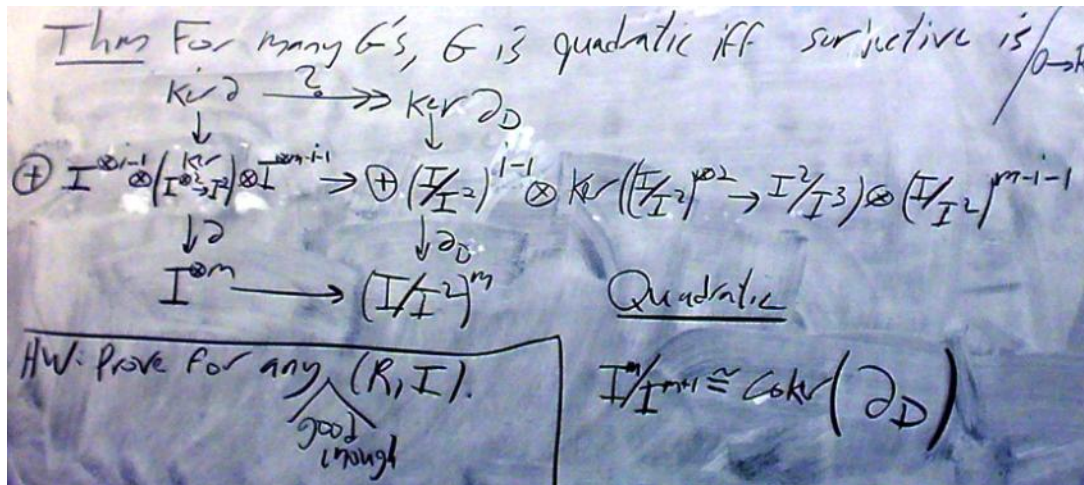 Thm For many G's, G is quadratic iff surjective is / 0→
ker ∂ —?↠ ker ∂_D
↓ ↓
⊕ I^{⊗i-1} ⊗ (ker I^{⊗2}→I^2) ⊗ I^{⊗m-i-1} → ⊕ (I/I^2)^{i-1} ⊗ ker((I/I^2)^{⊗2} → I^2/I^3) ⊗ (I/I^2)^{m-i-1}
↓∂ ↓∂_D
I^{⊗m} → (I/I^2)^m
Quadratic
I^m/I^{m+1} ≅ coker(∂_D)
HW: Prove for any good enough (R, I).